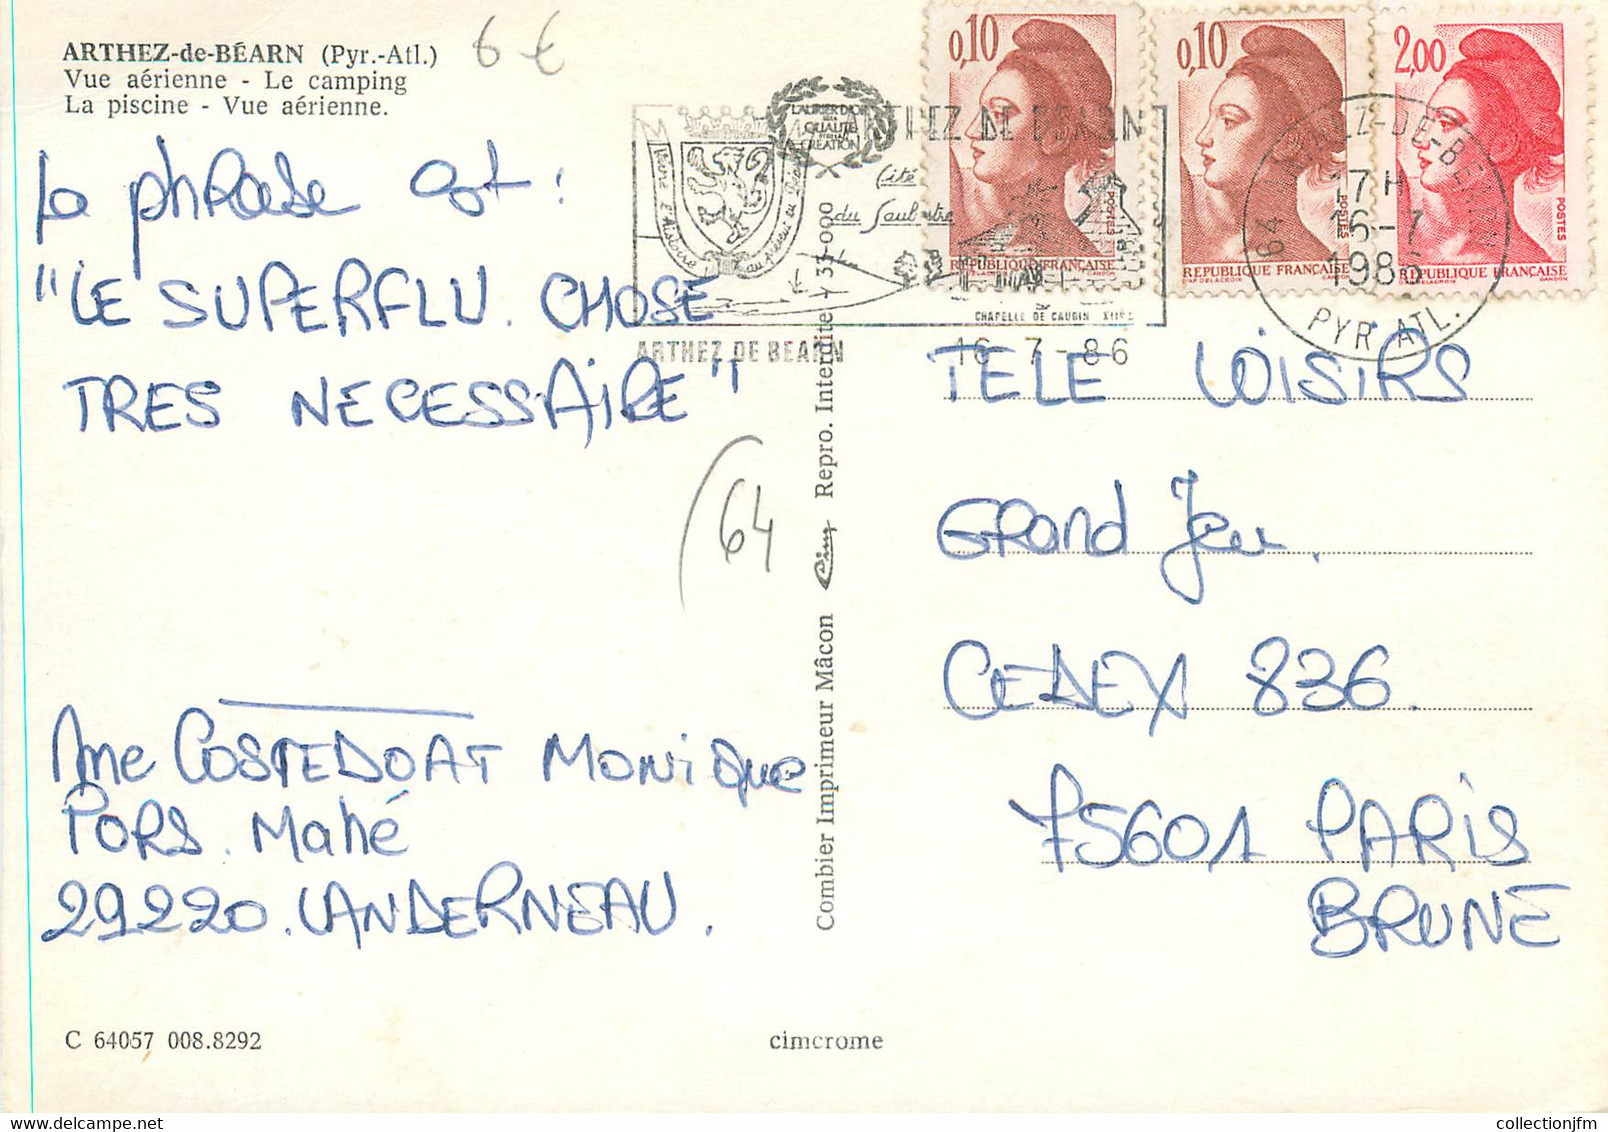 ARTHEZ-de-BÉARN (Pyr.-Atl.)
Vue aérienne - Le camping
La piscine - Vue aérienne.
6 €
la phrase est :
"LE SUPERFLU. CHOSE
TRES NECESSAIRE"
(64
Mme COSTEDOAT MONIQUE
PORS. Mahé
29220. LANDERNEAU.
C 64057 008.8292
cimcrome
Combier Imprimeur Mâcon Cim Repro. Interdite - 33-000
LAURIER D'OR
DE LA
QUALITÉ
CREATION
THEZ DE BEARN
Cité
du Saubestre
CHAPELLE DE CAUBIN XIIe S
ARTHEZ DE BEARN
16-7-86
0,10
POSTES
REPUBLIQUE FRANÇAISE
0,10
POSTES
REPUBLIQUE FRANÇAISE
2,00
POSTES
REPUBLIQUE FRANÇAISE
64 ARTHEZ-DE-BEARN
17 H
16-7
1986
PYR. ATL.
TELE LOISIRS
GRAND Jeu.
CEDEX 836.
75601 PARIS
BRUNE
collectionjfm